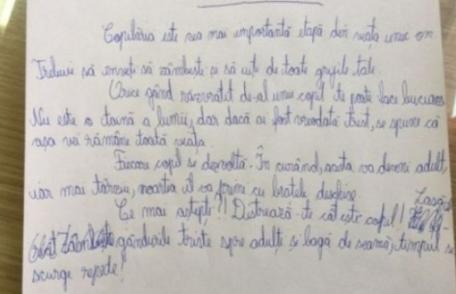 Copilăria este cea mai importantă etapă din viața unui om.
Trebuie să înveți să zâmbești și să uiți de toate grijile tale.
Orice gând năzvratit de-al unui copil te poate face bucuros.
Nu este o taină a lumii, dar dacă ai fost vreodată trist, se spune că
așa vei rămâne toată viața.
Fiecare copil se dezvoltă. În curând, acesta va deveni adult,
iar mai târziu, moartea îl va primi cu brațele deschise.
Ce mai aștepți?! Distrează-te cât ești copil! Lasă
gândurile triste spre adulți și bagă de seamă, timpul se
scurge repede!